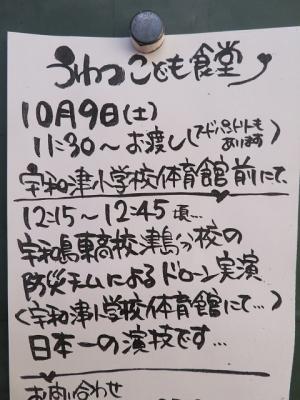 うわつこども食堂
10月9日(土)
11:30〜お渡し(フードパントリーも
あります)
宇和津小学校体育館前にて、
12:15〜12:45頃…
宇和島東高校津島分校の
防災チームによるドローン実演
(宇和津小学校体育館にて…)
日本一の演技です…
お問い合わせ